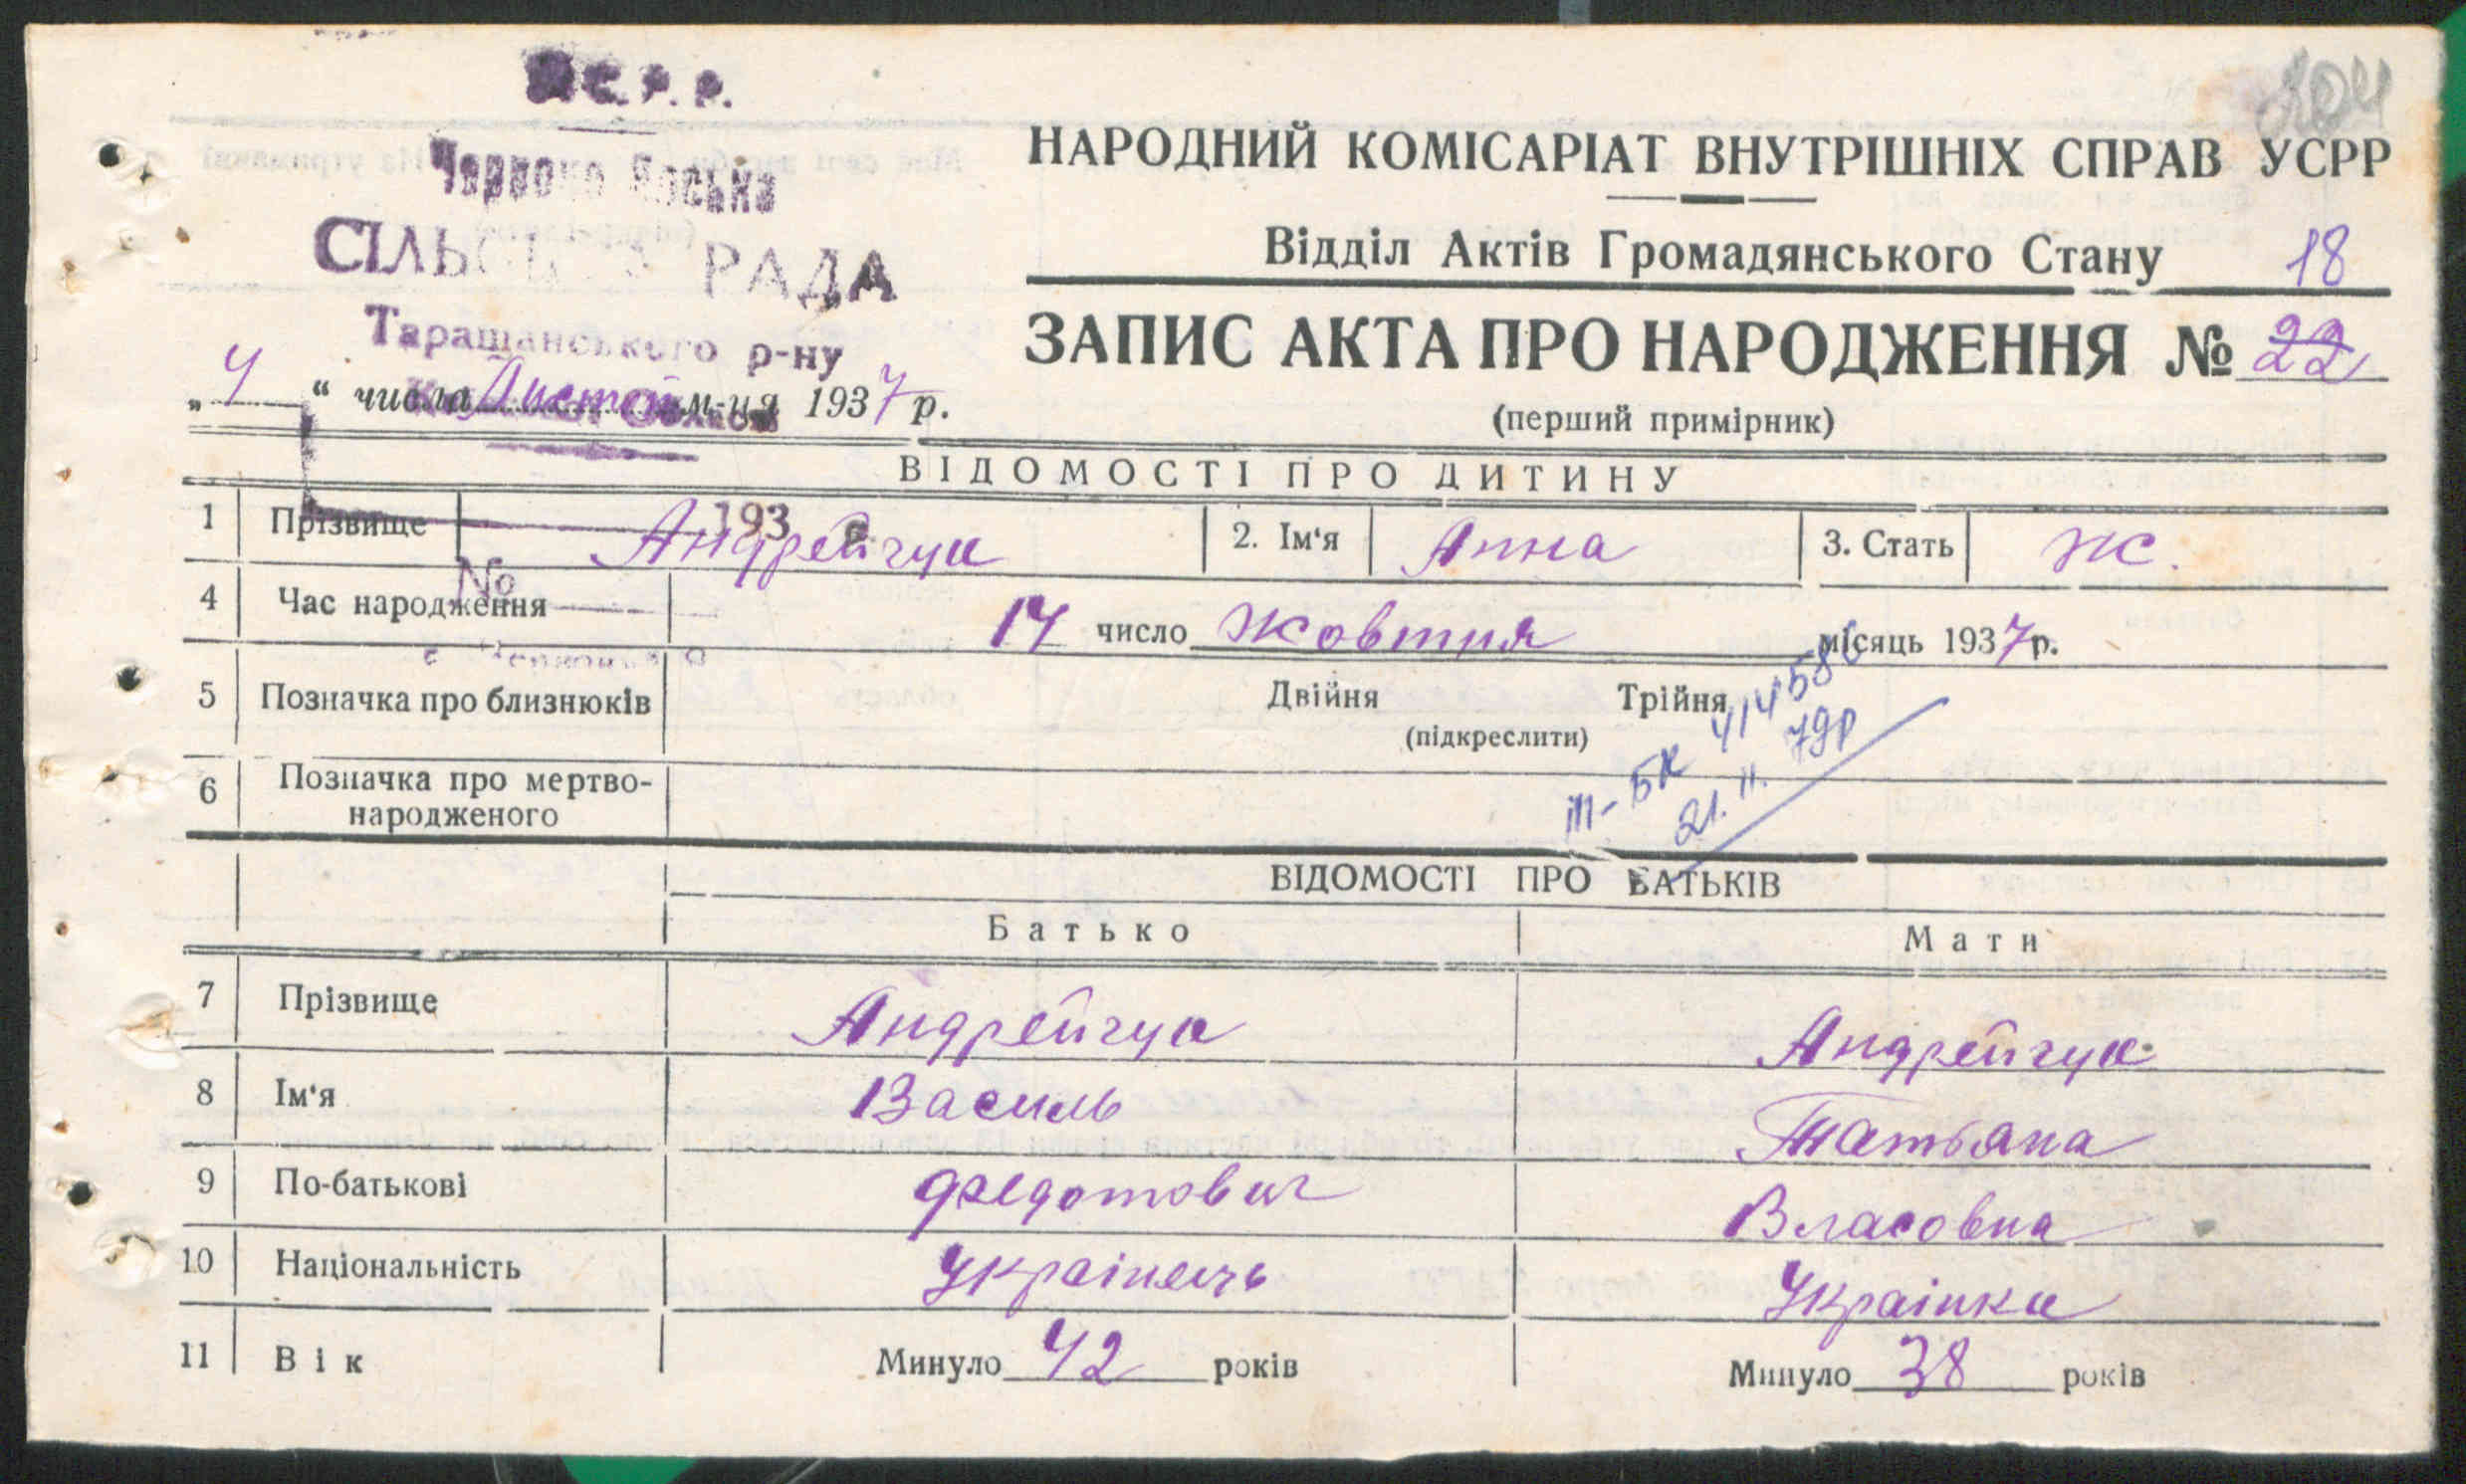 С.Р.Р.
СІЛЬСЬКА РАДА
Таращанського р-ну
„4“ числа Листоп м-ця 1937 р.
193 р.
№
НАРОДНИЙ КОМІСАРІАТ ВНУТРІШНІХ СПРАВ УСРР
Відділ Актів Громадянського Стану 18
ЗАПИС АКТА ПРО НАРОДЖЕННЯ № 22
(перший примірник)
ВІДОМОСТІ ПРО ДИТИНУ
1 Прізвище Андрейчук 2. Ім'я Анна 3. Стать Ж.
4 Час народження 14 число Жовтня місяць 1937р.
5 Позначка про близнюків Двійня Трійня
(підкреслити)
III-БК 414586
21.11.79р
6 Позначка про мертво-
народженого
ВІДОМОСТІ ПРО БАТЬКІВ
Батько Мати
7 Прізвище Андрейчук Андрейчук
8 Ім'я Василь Татьяна
9 По-батькові Федотович Власовна
10 Національність Українець Українка
11 Вік Минуло 42 років Минуло 38 років